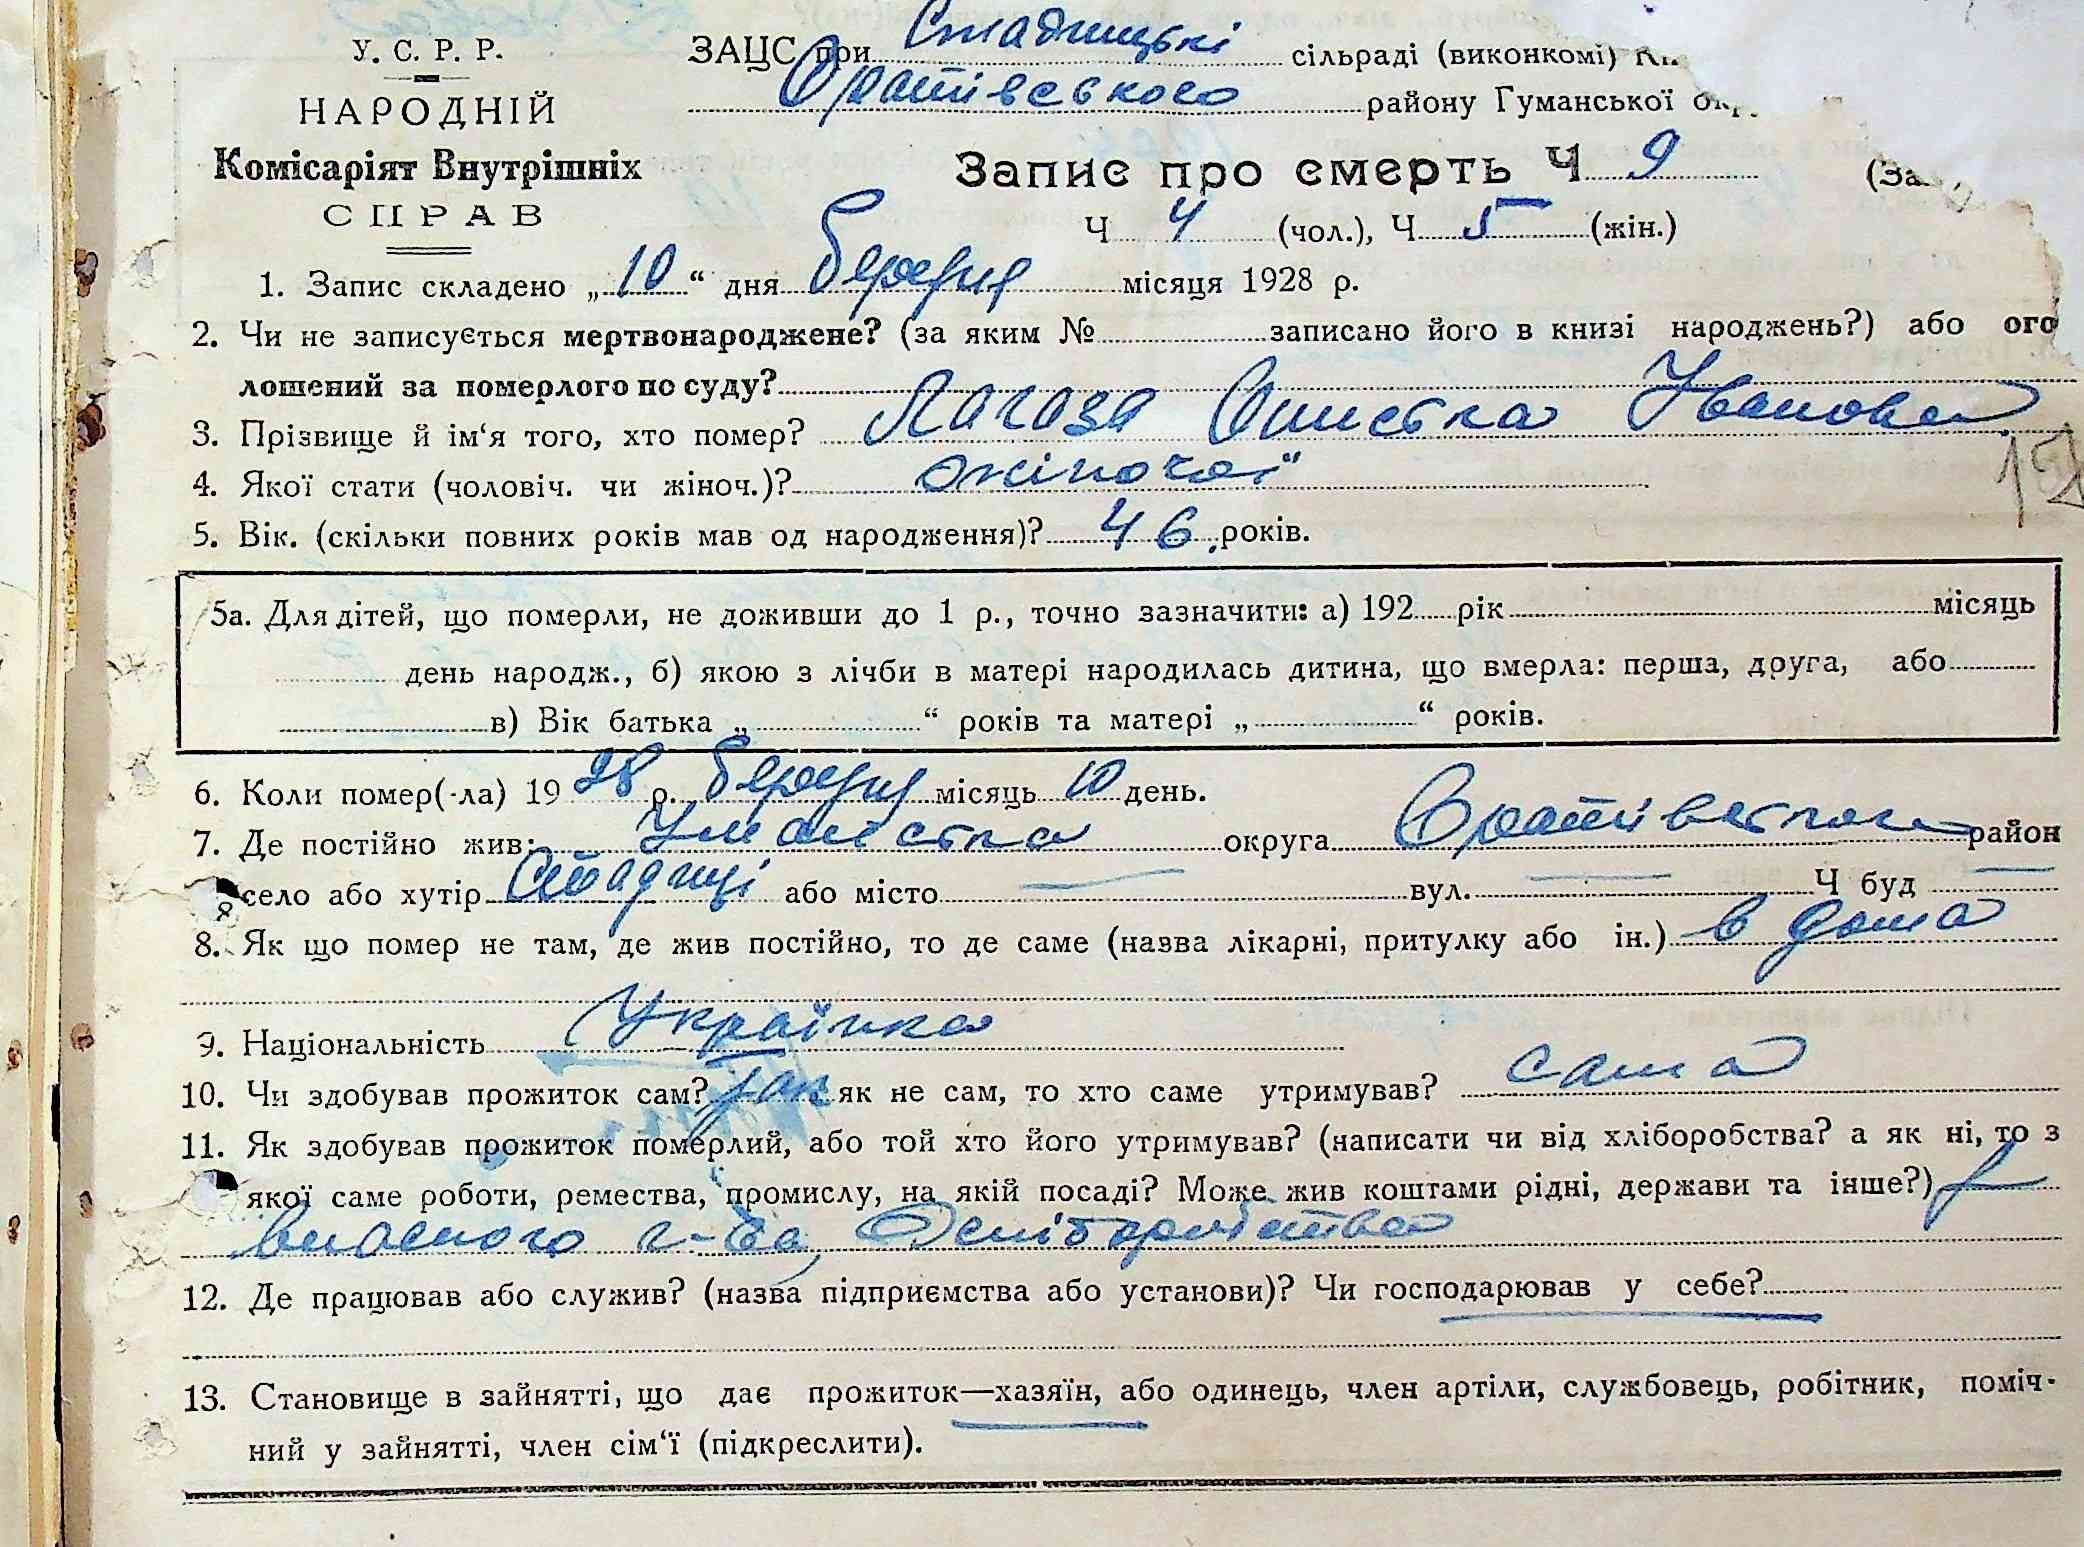 У. С. Р. Р.
НАРОДНІЙ
Комісаріят Внутрішніх
СПРАВ
ЗАЦС при Стадницькі сільраді (виконкомі)
Оратівського району Гуманської
Запис про смерть Ч 9
Ч 4 (чол.), Ч 5 (жін.)
1. Запис складено „10“ дня березня місяця 1928 р.
2. Чи не записується мертвонароджене? (за яким № записано його в книзі народжень?) або ого
лошений за померлого по суду?
3. Прізвище й ім‘я того, хто помер? Лагоза Ониська Іванова
4. Якої стати (чоловіч. чи жіноч.)? жіночої
5. Вік. (скільки повних років мав од народження)? 46 років.
5а. Для дітей, що померли, не доживши до 1 р., точно зазначити: а) 192 рік місяць
день народж., б) якою з лічби в матері народилась дитина, що вмерла: перша, друга, або
в) Вік батька „ “ років та матері „ “ років.
6. Коли помер(-ла) 1928 р. березня місяць 10 день.
7. Де постійно жив: Уманська округа Оратівського район
село або хутір Стадниці або місто вул. Ч буд
8. Як що помер не там, де жив постійно, то де саме (назва лікарні, притулку або ін.) в дома
9. Національність Українка
10. Чи здобував прожиток сам? як не сам, то хто саме утримував? сама
11. Як здобував прожиток померлий, або той хто його утримував? (написати чи від хліборобства? а як ні, то з
якої саме роботи, ремества, промислу, на якій посаді? Може жив коштами рідні, держави та інше?)
власного г-ва,
12. Де працював або служив? (назва підприємства або установи)? Чи господарював у себе?
13. Становище в зайнятті, що дає прожиток—хазяїн, або одинець, член артіли, службовець, робітник, поміч-
ний у зайнятті, член сім‘ї (підкреслити).